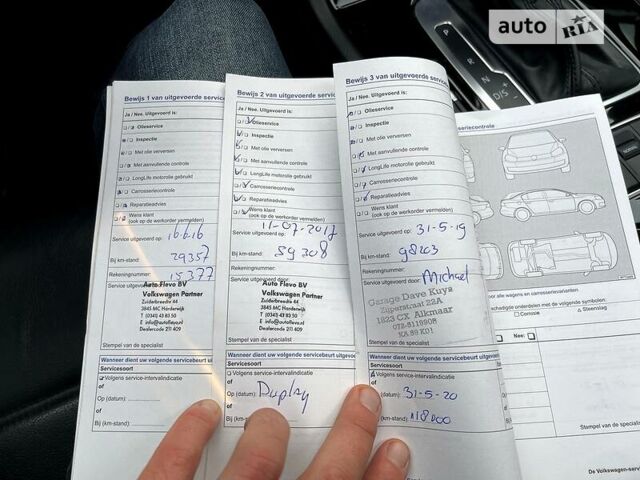 auto RIA
Bewijs 1 van uitgevoerde servic
Ja / Nee. Uitgevoerd is:
Olieservice
Inspectie
Met olie verversen
Met aanvullende controle
LongLife motorolie gebruikt
Carrosseriecontrole
Reparatieadvies
Wens klant
(ook op de werkorder vermelden)
Service uitgevoerd op: 16.6.16
Bij km-stand: 29357
Rekeningnummer: 15377
Service uitgevoerd door:
Auto Flevo BV
Volkswagen Partner
Zuiderbreedte 44
3845 MC Harderwijk
T (0341) 43 83 50
E info@autoflevo.nl
Dealercode 211 409
Stempel van de specialist
Wanneer dient uw volgende servicebeurt uitg
Servicesoort
Volgens service-intervalindicatie
of
Op (datum):
of
Bij (km-stand):
Bewijs 2 van uitgevoerde servic
Ja / Nee. Uitgevoerd is:
Olieservice
Inspectie
Met olie verversen
Met aanvullende controle
LongLife motorolie gebruikt
Carrosseriecontrole
Reparatieadvies
Wens klant
(ook op de werkorder vermelden)
Service uitgevoerd op: 11-07-2017
Bij km-stand: 59308
Rekeningnummer:
Service uitgevoerd door:
Auto Flevo BV
Volkswagen Partner
Zuiderbreedte 44
3845 MC Harderwijk
T (0341) 43 83 50
E info@autoflevo.nl
Dealercode 211 409
Stempel van de specialist
Wanneer dient uw volgende servicebeurt uitg
Servicesoort
Volgens service-intervalindicatie
of
Op (datum): Display
of
Bij (km-stand):
Bewijs 3 van uitgevoerde service
Ja / Nee. Uitgevoerd is:
Olieservice
Inspectie
Met olie verversen
Met aanvullende controle
LongLife motorolie gebruikt
Carrosseriecontrole
Reparatieadvies
Wens klant
(ook op de werkorder vermelden)
Service uitgevoerd op: 31-5-19
Bij km-stand: 98203
Rekeningnummer:
Service uitgevoerd door: Michael
Garage Dave Kuys
Zuperstraat 22A
1823 CX Alkmaar
Stempel van de specialist
Wanneer dient uw volgende servicebeurt uitgevoerd
Servicesoort
Volgens service-intervalindicatie
of
Op (datum): 31-5-20
of
Bij (km-stand): 118000
P
R
N
D/S
seriecontrole
voor alle wagens en carrosserievarianten
schadigde onderdelen met de volgende symbolen:
Corrosie
Steenslag
Nee:
Stempel van de specialist
De Volkswagen-servic